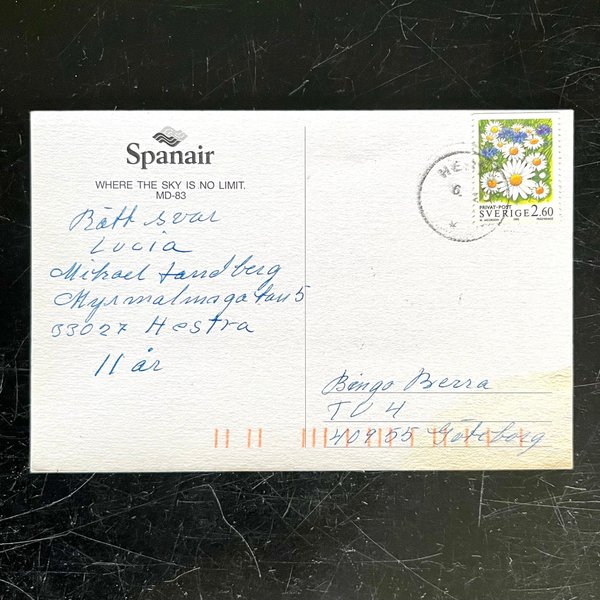 Spanair
WHERE THE SKY IS NO LIMIT.
MD-83
Rätt svar
Lucia
Mikael Sandberg
Myrmalmsgatan 5
33027 Hestra
11 år
HE
6
PRIVAT-POST
SVERIGE 2.60
Bingo Berra
TV 4
40955 Göteborg